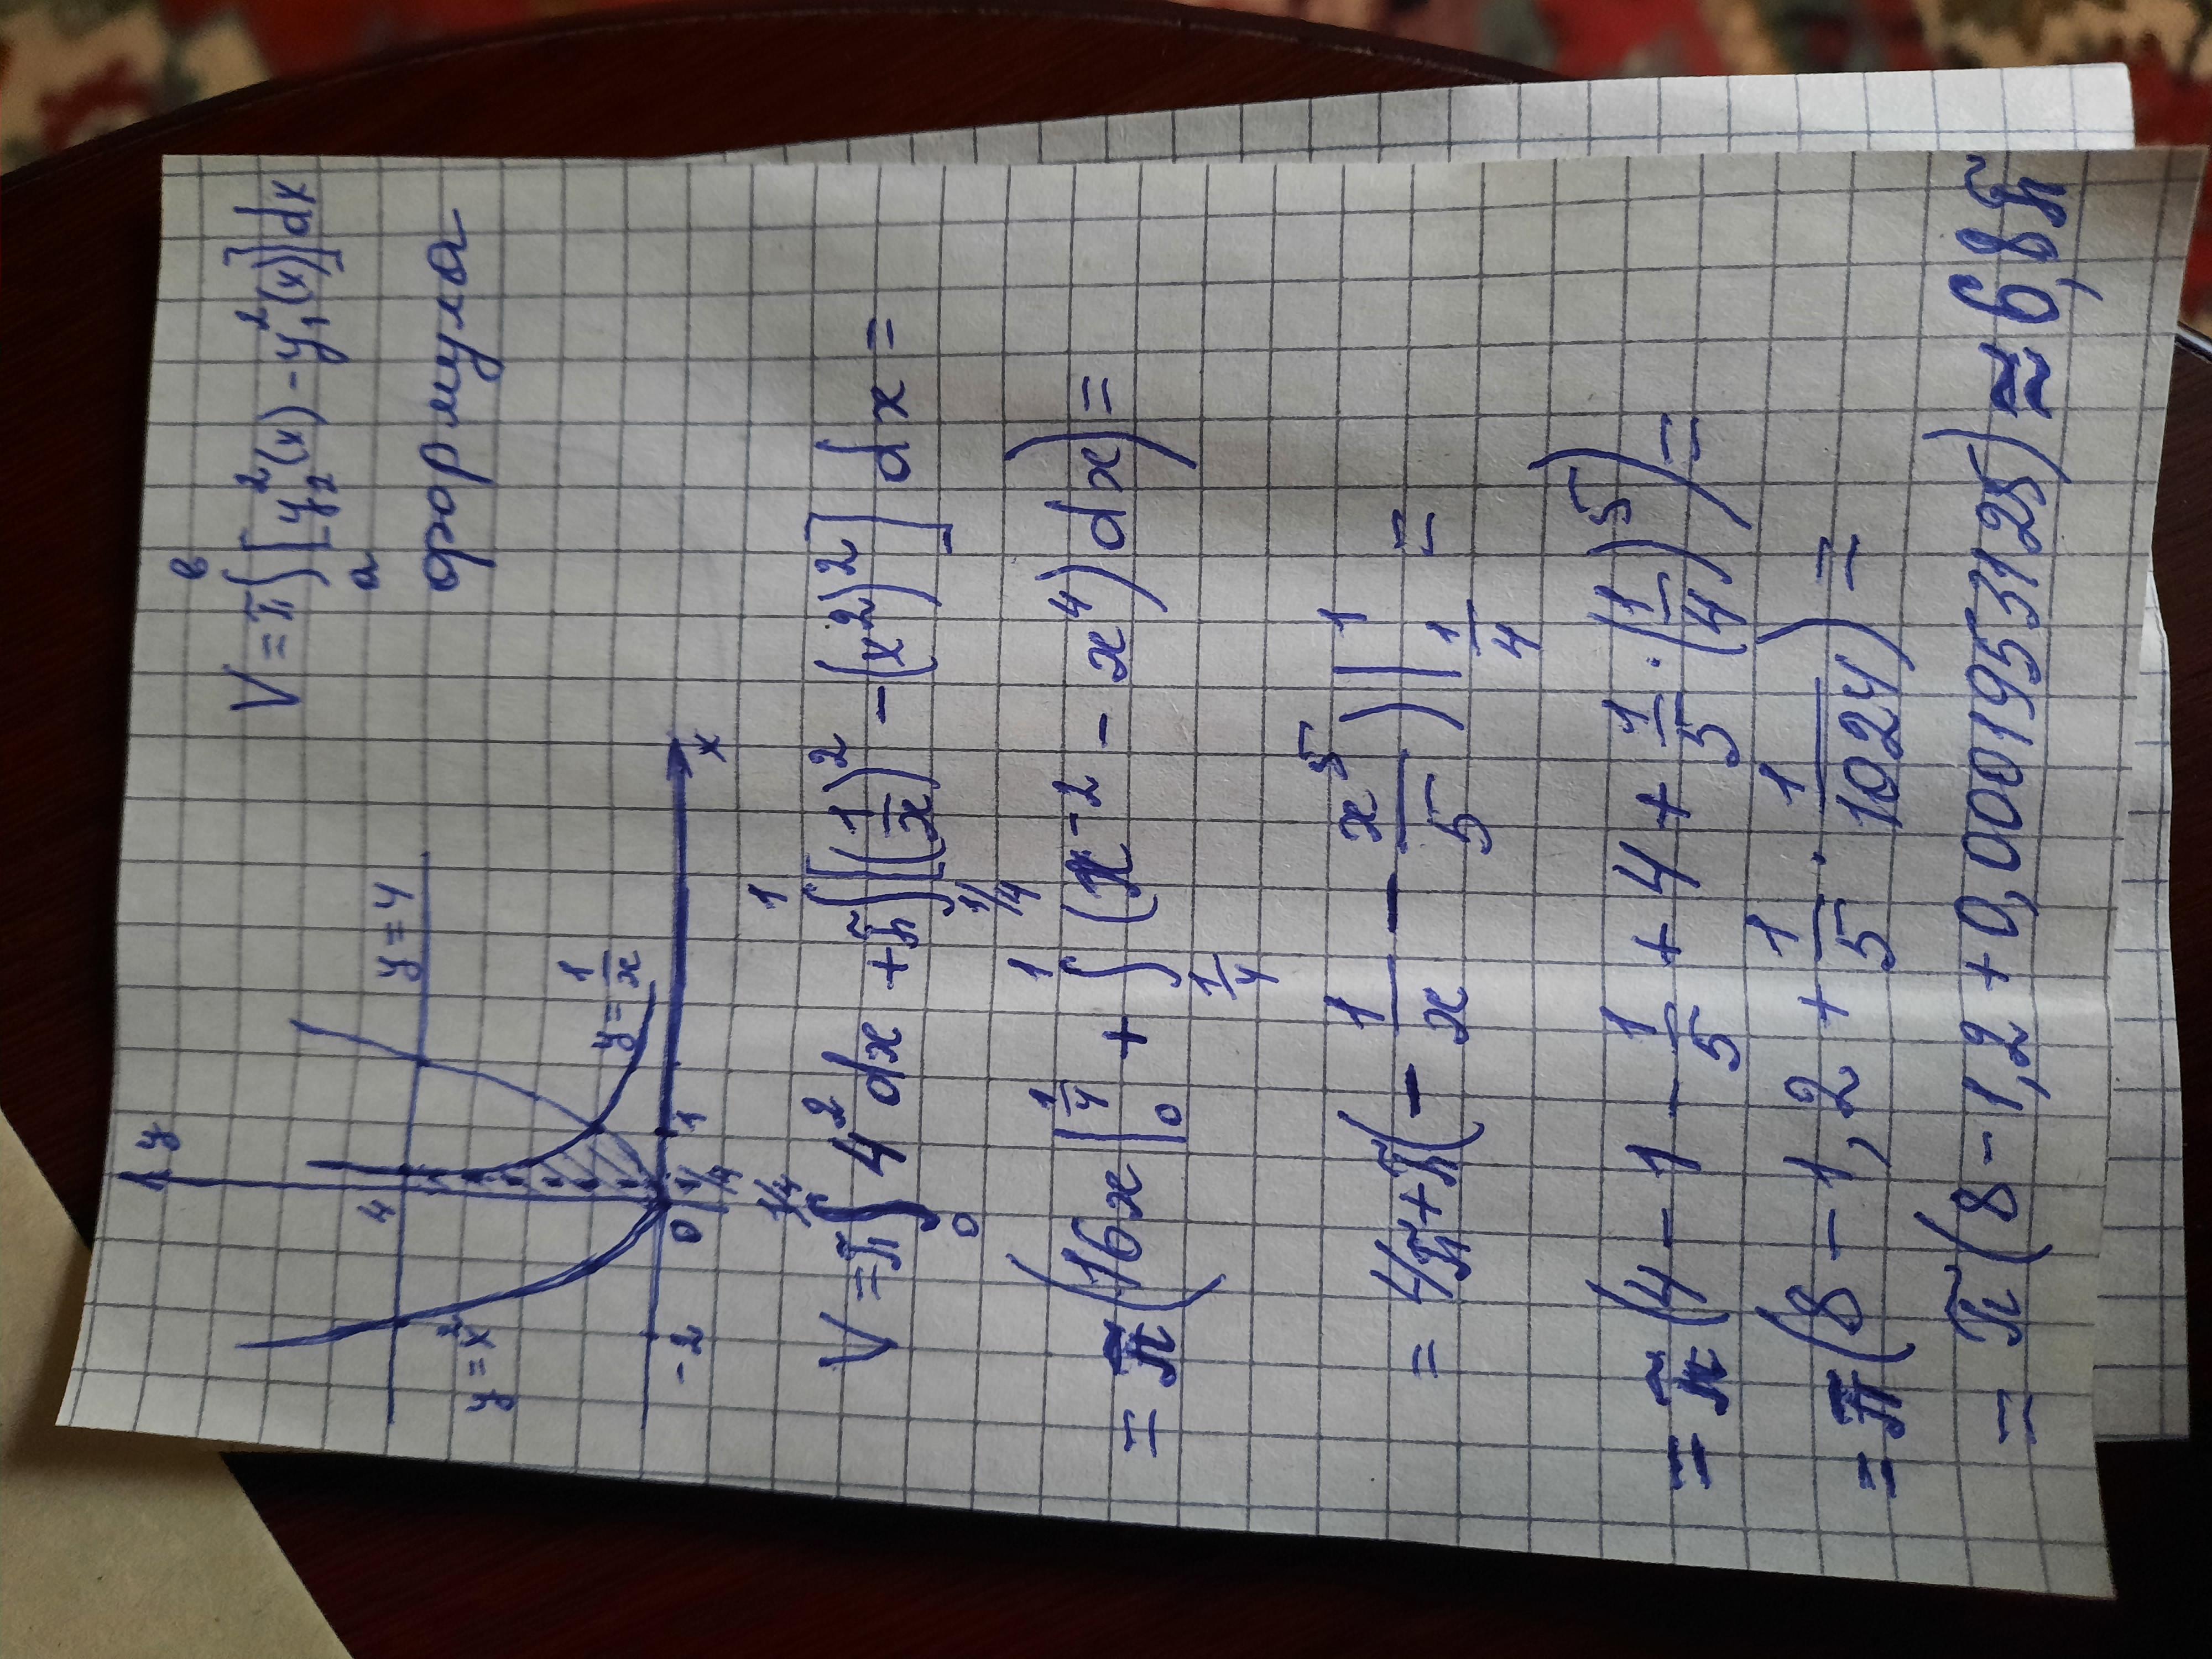 V = π∫ₐᵇ[y₂²(x) - y₁²(x)]dx
формула
y
4
y = 4
y = x²
y = 1/x
-2 0 1/4 1 x
V = π∫₀^(1/4) 4² dx + π∫_(1/4)^1 [(1/x)² - (x²)²] dx =
= π(16x |₀^(1/4) + ∫_(1/4)^1 (x⁻² - x⁴) dx) =
= 4π + π(- 1/x - x⁵/5) |_(1/4)^1 =
= π(4 - 1 - 1/5 + 4 + 1/5 · (1/4)⁵) =
= π(8 - 1,2 + 1/5 · 1/1024) =
= π(8 - 1,2 + 0,0001953125) ≈ 6,8π